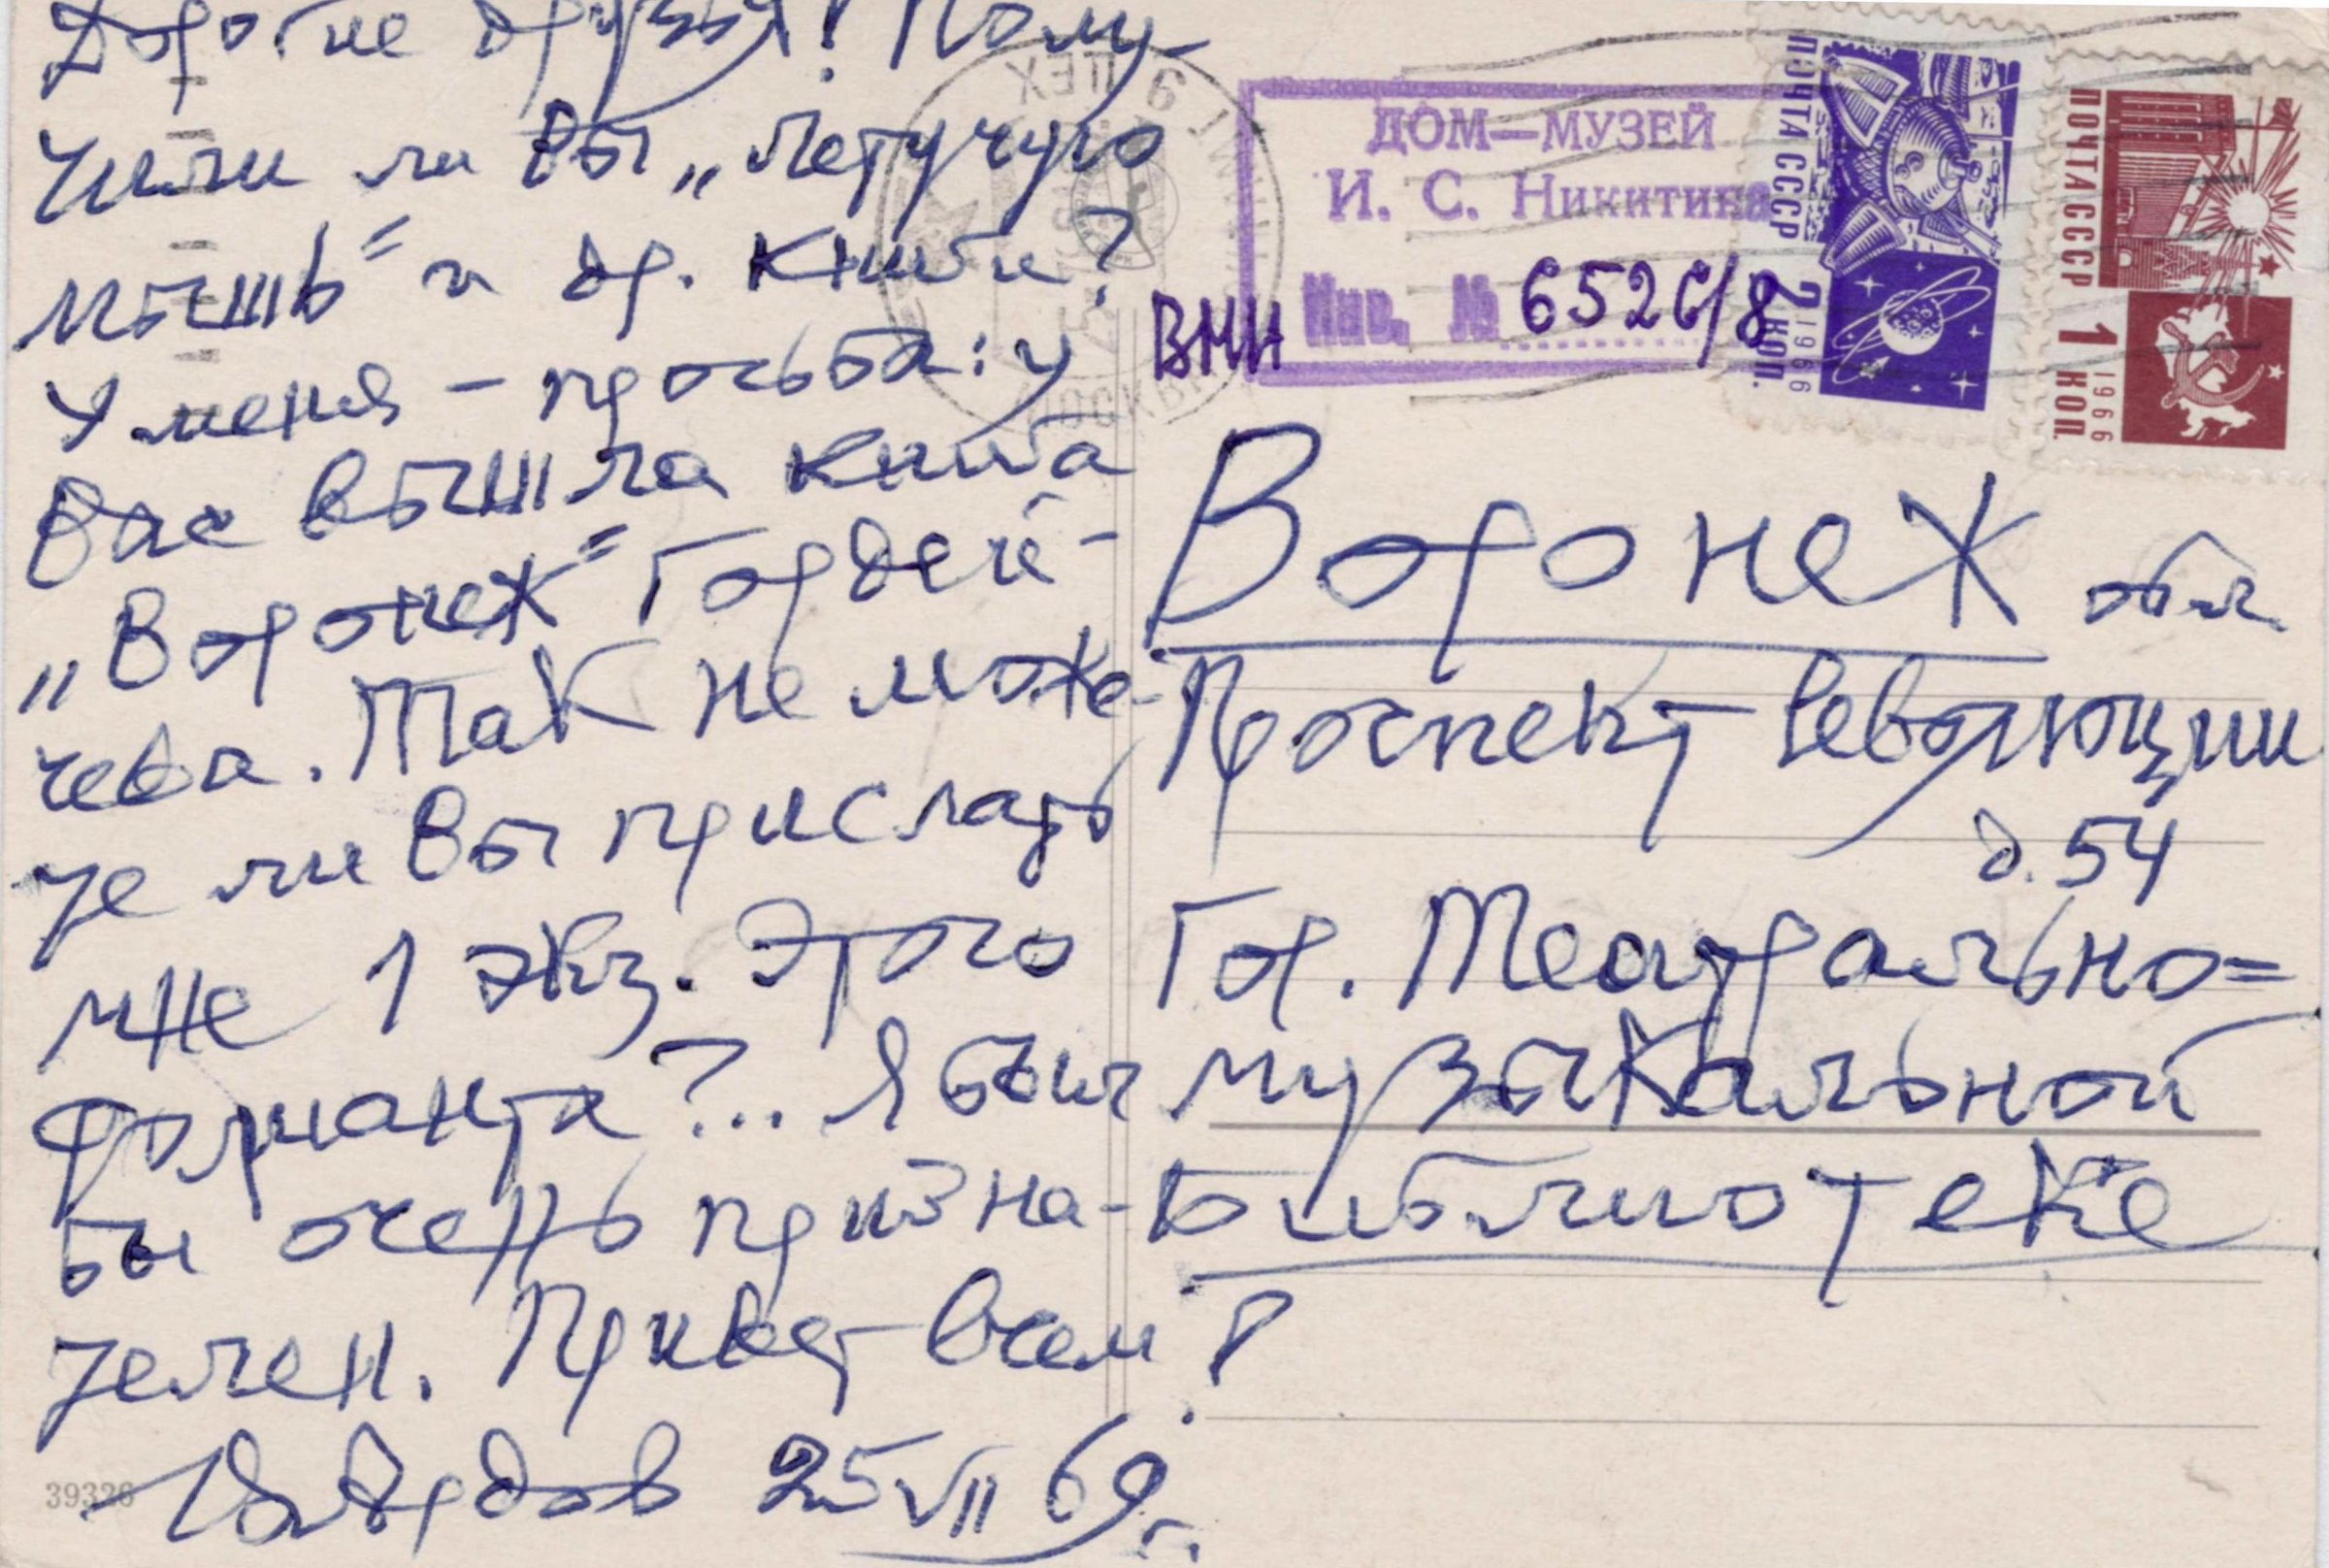 Дорогие друзья! Полу-
чили ли Вы „Летучую
мышь" и др. книги?
У меня – просьба: у
Вас вышла книга
„Воронеж" Гордей-
чева. Так не може-
те ли Вы прислать
мне 1 экз. этого
фолианта?... Я был
бы очень призна-
телен. Привет всем!
25 VII 69 г.
39326
ДОМ—МУЗЕЙ
И. С. Никитина
ВМН Инв. № 6526/8
ПОЧТА СССР 2 КОП. 1966
ПОЧТА СССР 1 КОП. 1966
Воронеж обл
Проспект Революции
д. 54
Гор. Театрально=
музыкальной
Библиотеке